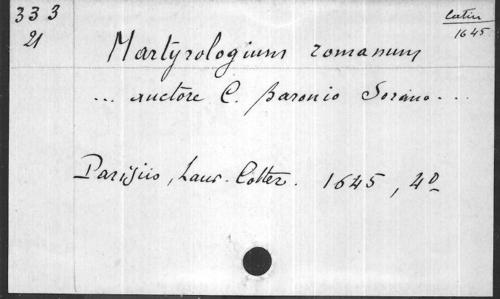 333
21
Latin
1645
Martyrologium romanum
... auctore C. Baronio Sorano...
Parisiis, Laur. Cotter. 1645, 4º